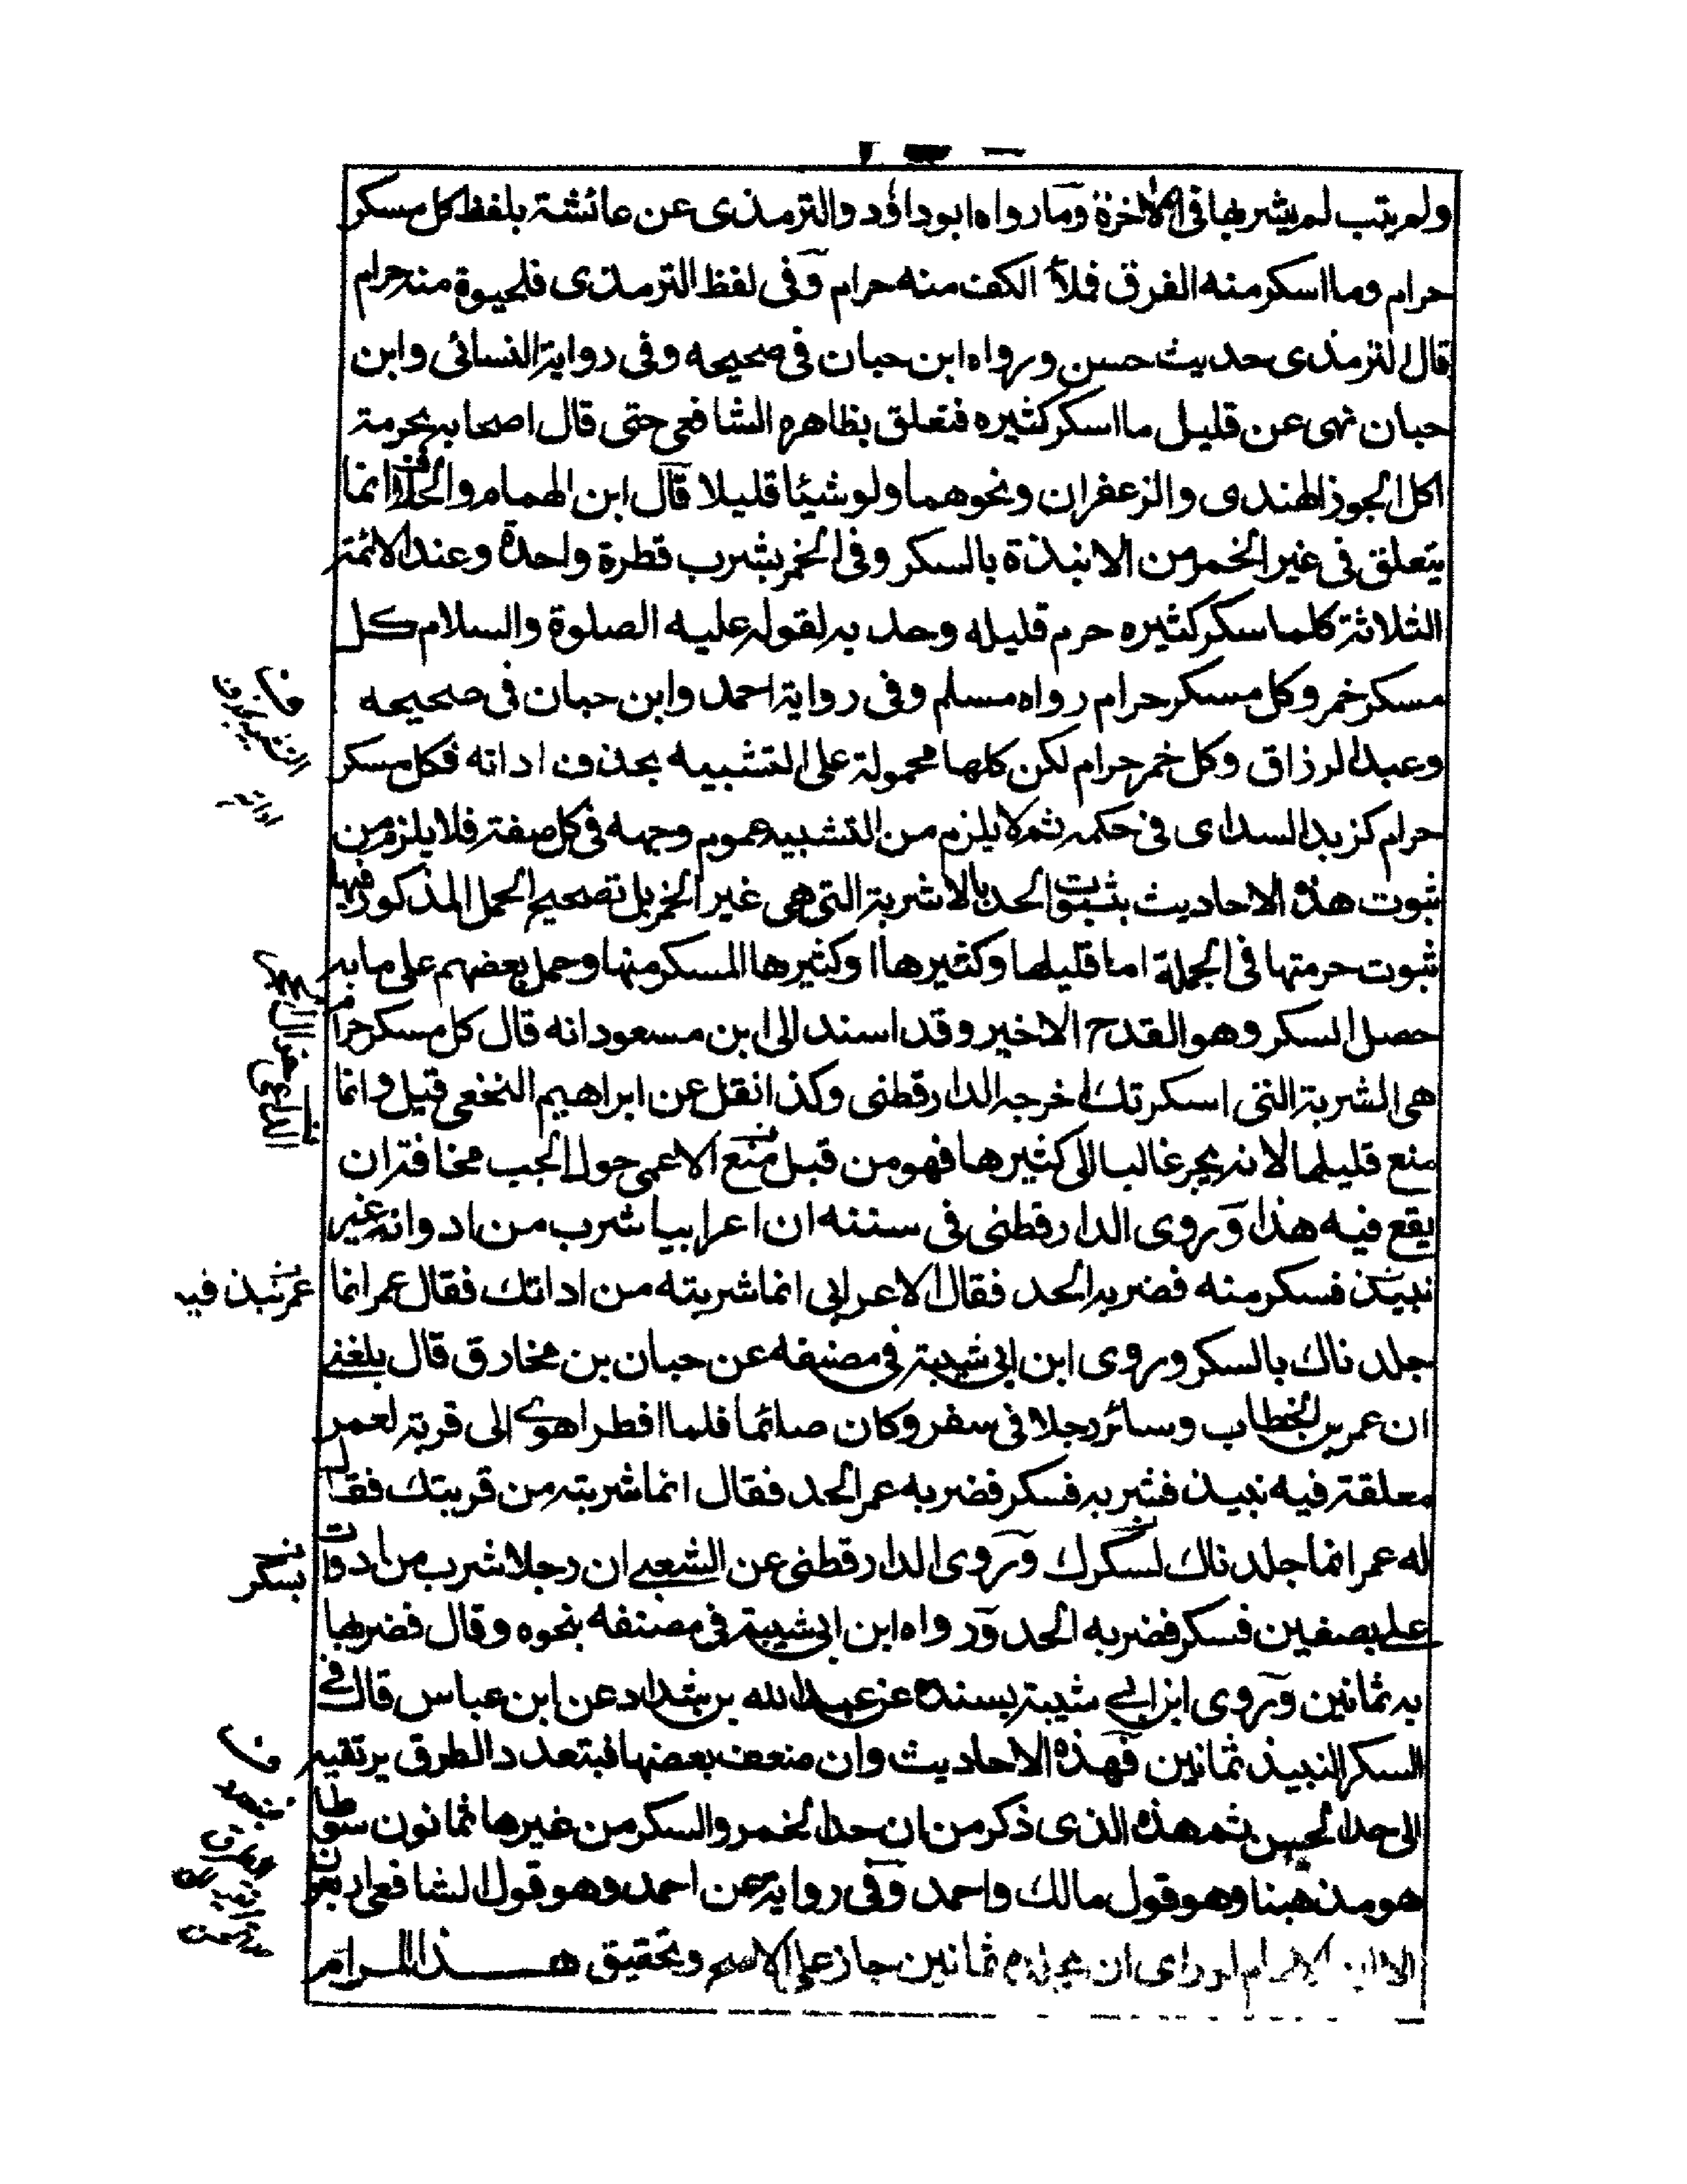 ولم يتب لم يشربها فى الاخرة وما رواه ابو داؤد والترمذى عن عائشة بلفظ كل مسكر
حرام وما اسكر منه الفرق فملأ الكف منه حرام وفى لفظ الترمذى فالحسوة منه حرام
قال الترمذى حديث حسن ورواه ابن حبان فى صحيحه وفى رواية النسائى وابن
حبان نهى عن قليل ما اسكر كثيره فتعلق بظاهره الشافعى حتى قال اصحابه بحرمة
اكل الجوز الهندى والزعفران ونحوهما ولو شيئا قليلا قال ابن الهمام والحد انما
يتعلق فى غير الخمر من الانبذة بالسكر وفى الخمر بشرب قطرة واحدة وعند الائمة
الثلاثة كلما اسكر كثيره حرم قليله وحد به لقوله عليه الصلوة والسلام كل
مسكر خمر وكل مسكر حرام رواه مسلم وفى رواية احمد وابن حبان فى صحيحه
وعبد الرزاق وكل خمر حرام لكن كلها محمولة على التشبيه بحذف اداته فكل مسكر
حرام كزيد السداى فى حكمه ثم لا يلزم من التشبيه عموم وجهه فى كل صفة فلا يلزم من
ثبوت هذه الاحاديث بثبوت الحد بالاشربة التى هى غير الخمر بل تصحيح الحمل المذكور فيها
ثبوت حرمتها فى الجملة اما قليلها وكثيرها او كثيرها المسكر منها وحمل بعضهم على ما به
حصل السكر وهو القدح الاخير وقد اسند الى ابن مسعود انه قال كل مسكر حرام
هى الشربة التى اسكرتك اخرجه الدارقطنى وكذا نقل عن ابراهيم النخعى قيل وانما
منع قليلها لانه يجر غالبا الى كثيرها فهو من قبل منع الاعمى حول الجب مخافة ان
يقع فيه هذا وروى الدارقطنى فى سننه ان اعرابيا شرب من ادوانه غير
نبيذ فسكر منه فضربه الحد فقال الاعرابى انما شربته من اداتك فقال عمر انما
عمر نبيذ فيه
جلدناك بالسكر وروى ابن ابى شيبة فى مصنفه عن حبان بن مخارق قال بلغنى
ان عمر بن الخطاب وسائر رجلا فى سفر وكان صائما فلما افطر اهوى الى قربة لعمر
معلقة فيه نبيذ فشربه فسكر فضربه عمر الحد فقال انما شربته من قربتك فقال
له عمر انما جلدناك لسكرك وروى الدارقطنى عن الشعبى ان رجلا شرب من ادوات
بسكر
على بصفين فسكر فضربه الحد ورواه ابن ابى شيبة فى مصنفه بنحوه وقال فضربها
به ثمانين وروى ابن ابى شيبة بسنده عن عبد الله بن شداد عن ابن عباس قال فى
السكر النبيذ ثمانين فهذه الاحاديث وان ضعف بعضها فبتعدد الطرق يرتقيه
الى حد الحسن ثم هذه الذى ذكر من ان حد الخمر والسكر من غيرها ثمانون سوطا
هو مذهبنا وهو قول مالك واحمد وفى رواية عن احمد وهو قول الشافعى اربعون
راى ان يجلده ثمانين جاز على الاسم وتحقيق هذا المرام